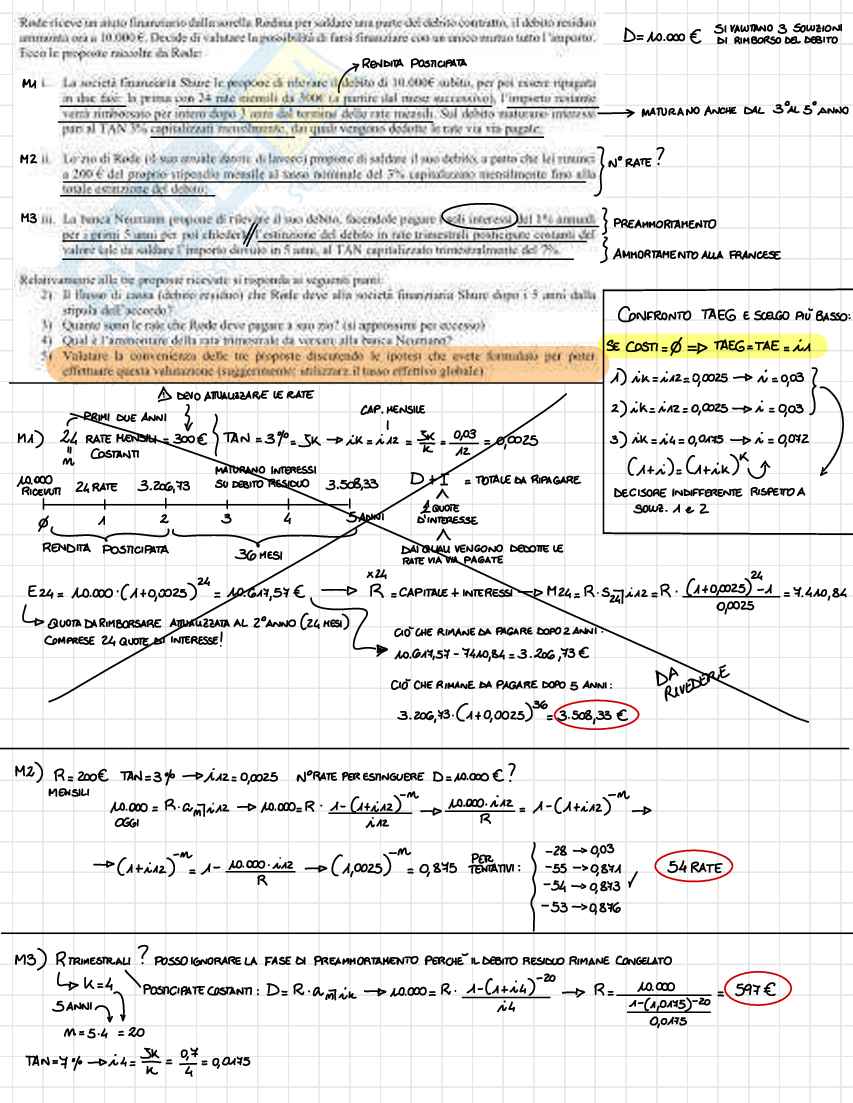 Rode riceve un aiuto finanziario dalla sorella Rodina per saldare una parte del debito contratto, il debito residuo
ammonta ora a 10.000 €. Decide di valutare la possibilità di farsi finanziare con un unico mutuo tutto l'importo.
Ecco le proposte raccolte da Rode:
D = 10.000 € SI VALUTANO 3 SOLUZIONI
DI RIMBORSO DEL DEBITO
RENDITA POSTICIPATA
M1 i. La società finanziaria Shure le propone di rilevare il debito di 10.000€ subito, per poi essere ripagata
in due fasi: la prima con 24 rate mensili da 300€ (a partire dal mese successivo), l'importo restante
verrà rimborsato per intero dopo 3 anni dal termine delle rate mensili. Sul debito maturano interessi
pari al TAN 3% capitalizzati mensilmente, dai quali vengono dedotte le rate via via pagate.
MATURANO ANCHE DAL 3° AL 5° ANNO
M2 ii. Lo zio di Rode (il suo attuale datore di lavoro) propone di saldare il suo debito, a patto che lei rinunci
a 200 € del proprio stipendio mensile al tasso nominale del 3% capitalizzato mensilmente fino alla
totale estinzione del debito;
N° RATE ?
M3 iii. La banca Neumann propone di rilevare il suo debito, facendole pagare i soli interessi del 1% annuali
per i primi 5 anni per poi chiederle l'estinzione del debito in rate trimestrali posticipate costanti del
valore tale da saldare l'importo dovuto in 5 anni, al TAN capitalizzato trimestralmente del 7%.
PREAMMORTAMENTO
AMMORTAMENTO ALLA FRANCESE
Relativamente alle tre proposte ricevute si risponda ai seguenti punti:
2) Il flusso di cassa (debito residuo) che Rode deve alla società finanziaria Shure dopo i 5 anni dalla
stipula dell'accordo?
3) Quante sono le rate che Rode deve pagare a suo zio? (si approssimi per eccesso)
4) Qual è l'ammontare della rata trimestrale da versare alla banca Neumann?
5) Valutare la convenienza delle tre proposte discutendo le ipotesi che avete formulato per poter
effettuare questa valutazione (suggerimento: utilizzare il tasso effettivo globale)
CONFRONTO TAEG E SCELGO PIÙ BASSO:
SE COSTI = Ø => TAEG = TAE = i1
1) iK = i12 = 0,0025 → i = 0,03
2) iK = i12 = 0,0025 → i = 0,03
3) iK = i4 = 0,0175 → i = 0,072
(1+i) = (1+iK)^K
DECISORE INDIFFERENTE RISPETTO A
SOLUZ. 1 e 2
⚠ DEVO ATTUALIZZARE LE RATE
PRIMI DUE ANNI
M1) 24 RATE MENSILI = 300 € TAN = 3% = JK → iK = i12 = JK/K = 0,03/12 = 0,0025
m COSTANTI
CAP. MENSILE
10.000
RICEVUTI 24 RATE 3.206,73 MATURANO INTERESSI
SU DEBITO RESIDUO 3.508,33
Ø 1 2 3 4 5 ANNI
RENDITA POSTICIPATA 36 MESI
D + I = TOTALE DA RIPAGARE
QUOTE
D'INTERESSE
DAI QUALI VENGONO DEDOTTE LE
RATE VIA VIA PAGATE
E24 = 10.000 · (1+0,0025)^24 = 10.617,57 € → R x24 = CAPITALE + INTERESSI → M24 = R · S24⌉i12 = R · (1+0,0025)^24 −1 / 0,0025 = 7.410,84
QUOTA DA RIMBORSARE ATTUALIZZATA AL 2° ANNO (24 MESI)
COMPRESE 24 QUOTE DI INTERESSE!
CIÒ CHE RIMANE DA PAGARE DOPO 2 ANNI:
10.617,57 − 7410,84 = 3.206,73 €
CIÒ CHE RIMANE DA PAGARE DOPO 5 ANNI:
3.206,73 · (1+0,0025)^36 = 3.508,33 €
DA
RIVEDERE
M2) R = 200 € TAN = 3% → i12 = 0,0025 N° RATE PER ESTINGUERE D = 10.000 € ?
MENSILI
10.000 = R · a m⌉i12 → 10.000 = R · 1−(1+i12)^−m / i12 → 10.000 · i12 / R = 1−(1+i12)^−m →
OGGI
→ (1+i12)^−m = 1 − 10.000 · i12 / R → (1,0025)^−m = 0,875 PER
TENTATIVI:
−28 → 0,03
−55 → 0,871
−54 → 0,873 ✓
−53 → 0,876
54 RATE
M3) R TRIMESTRALI ? POSSO IGNORARE LA FASE DI PREAMMORTAMENTO PERCHÈ IL DEBITO RESIDUO RIMANE CONGELATO
K = 4
POSTICIPATE COSTANTI : D = R · a m⌉iK → 10.000 = R · 1−(1+i4)^−20 / i4 → R = 10.000 / 1−(1,0175)^−20 / 0,0175 = 597 €
5 ANNI
m = 5·4 = 20
TAN = 7% → i4 = JK/K = 0,7/4 = 0,0175